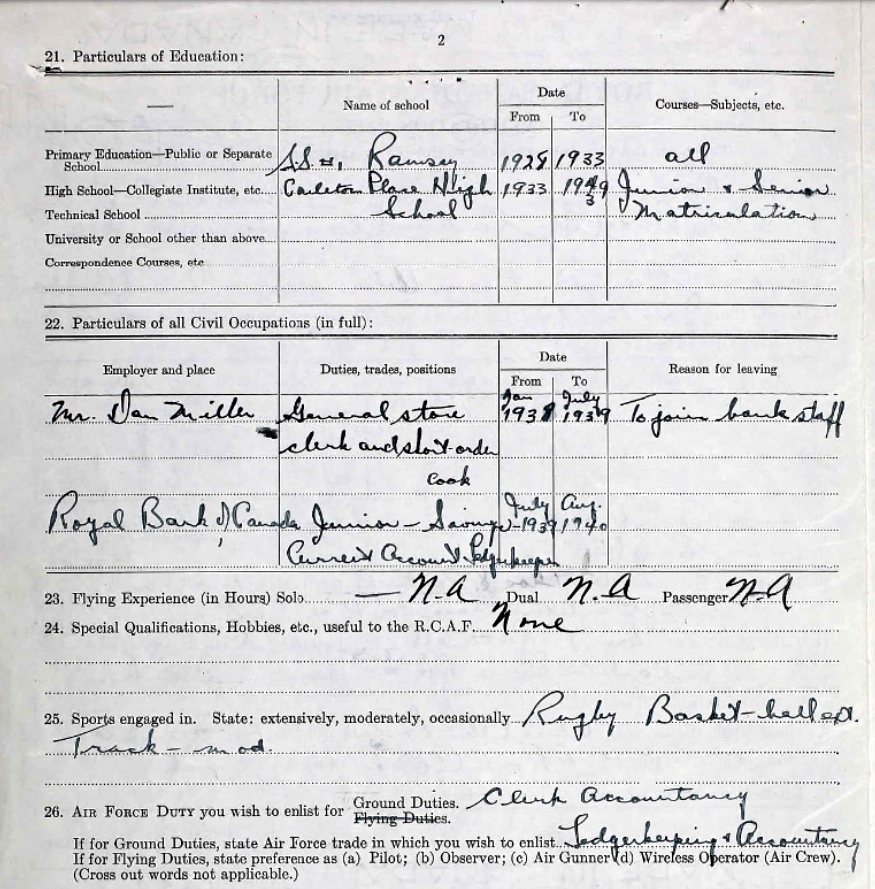 2
21. Particulars of Education:
— Name of school Date Courses—Subjects, etc.
From To
Primary Education—Public or Separate
School S.S. Ramsay 1928 1933 all
High School—Collegiate Institute, etc. Carleton Place High 1933 Junior & Senior
Technical School School Matriculation
University or School other than above
Correspondence Courses, etc
22. Particulars of all Civil Occupations (in full):
Employer and place Duties, trades, positions Date Reason for leaving
From To
Jan July
Mr. Dan Miller General store 1938 1939 To join bank staff
clerk and short-order
cook
July Aug.
Royal Bank of Canada Junior - Savings 1939 1940
Current Account Ledgerkeeper
23. Flying Experience (in Hours) Solo — N.A Dual N.A Passenger N.A
24. Special Qualifications, Hobbies, etc., useful to the R.C.A.F. None
25. Sports engaged in. State: extensively, moderately, occasionally Rugby Basket-ball ext.
Track - mod.
26. AIR FORCE DUTY you wish to enlist for Ground Duties. Clerk Accountancy
Flying Duties.
If for Ground Duties, state Air Force trade in which you wish to enlist Ledgerkeeping & Accountancy
If for Flying Duties, state preference as (a) Pilot; (b) Observer; (c) Air Gunner (d) Wireless Operator (Air Crew).
(Cross out words not applicable.)